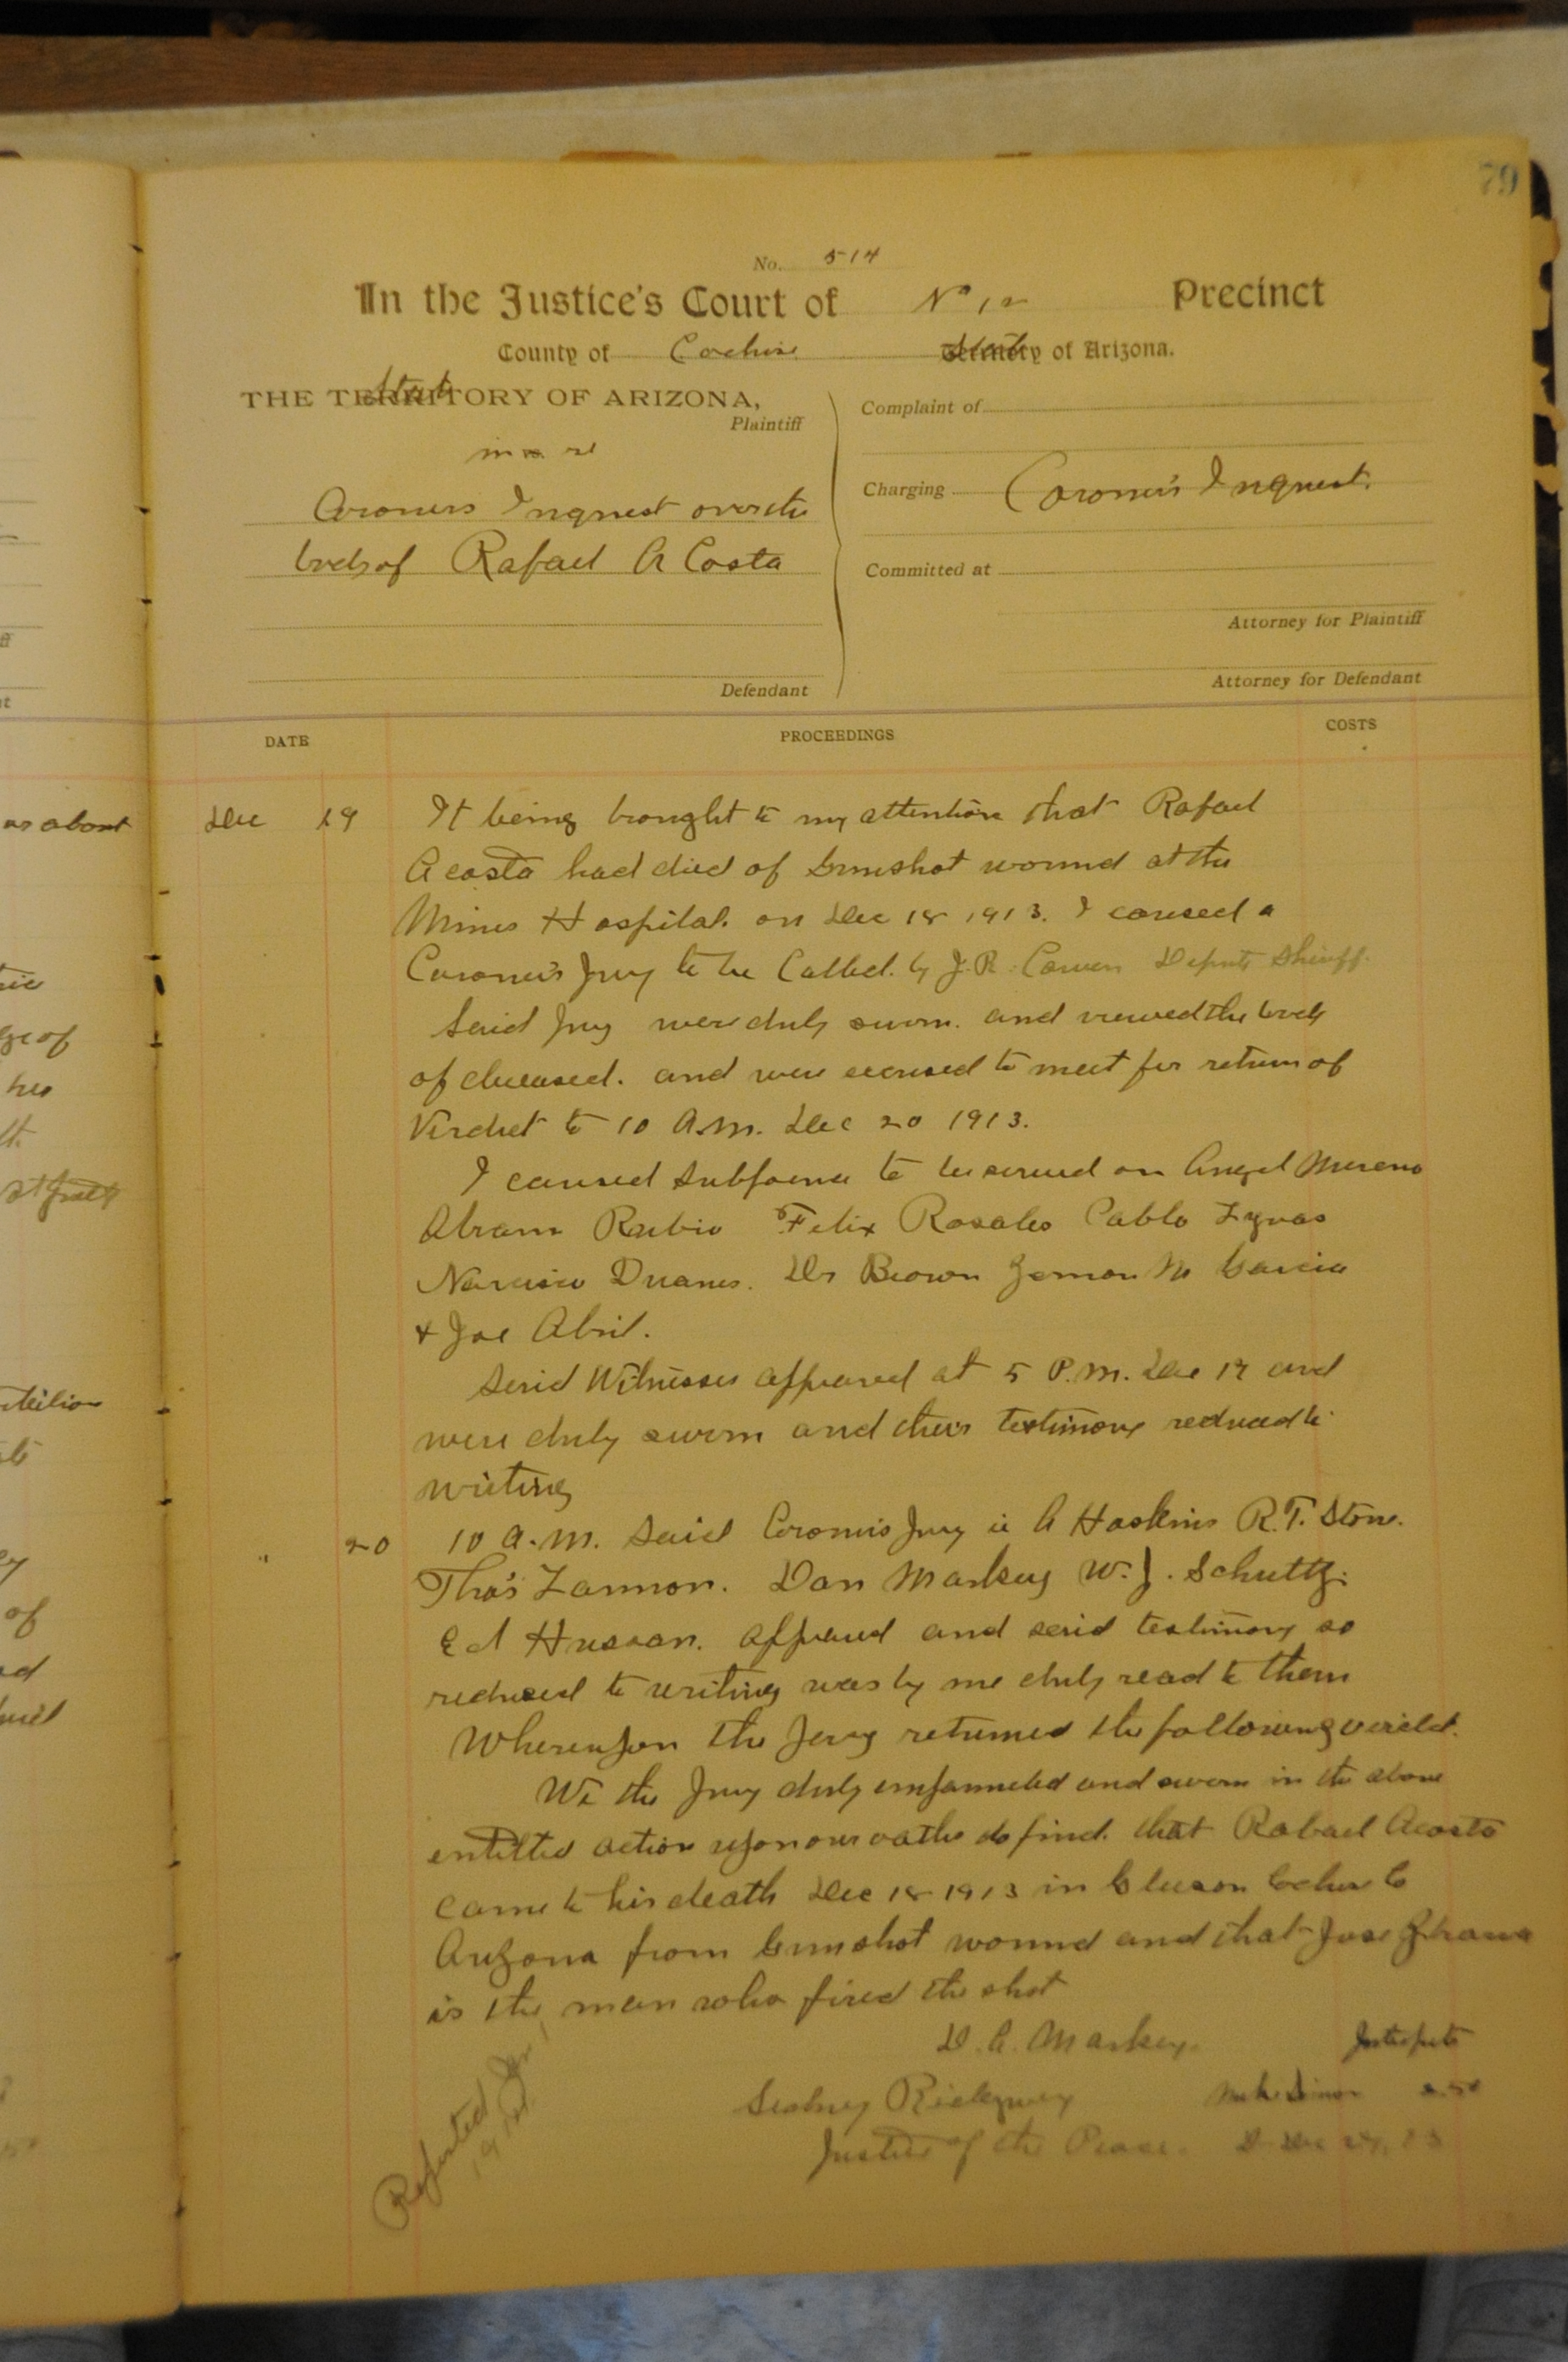 79
No. 514
In the Justice's Court of No 12 Precinct
County of Cochise State of Arizona.
THE State OF ARIZONA,
Plaintiff
in re
Coroners Inquest over the
body of Rafael A Costa
Defendant
Complaint of
Charging Coroner's Inquest.
Committed at
Attorney for Plaintiff
Attorney for Defendant
DATE PROCEEDINGS COSTS
Dec 19 It being brought to my attention that Rafael
Acosta had died of Gunshot wound at the
Mines Hospital. on Dec 18 1913. I caused a
Coroner's Jury to be Called. by J.R. Cowen Deputy Sheriff.
Said Jury were duly sworn. and viewed the body
of deceased. and were excused to meet for return of
Verdict to 10 A.M. Dec 20 1913.
I caused Subpoena to be served on Angel Moreno
Abram Rubio Felix Rosales Pablo
Narcisio Duanes. Dr Brown M Garcia
& Joe Abril.
Said Witnesses appeared at 5 P.M. Dec 19 and
were duly sworn and their testimony reduced to
writing
" 20 10 A.M. Said Coroners Jury ie A Haskins R.T. Stone.
Tho's Lannon. Dan Markey W.J. Schultz.
Ed appeared and said testimony so
reduced to writing was by me duly read to them
Whereupon the Jury returned the following verdict.
We the Jury duly empanneled and sworn in the above
entitled action upon our oaths do find. that Rafael Acosta
came to his death Dec 18 1913 in Gleeson Cochise Co
Arizona from Gunshot wound and that Jose
is the man who fired the shot
D.A. Markey.
Sidney Ridgway
Justice of the Peace.
2.50
Reported Jan 1
1914
as about
ge of
his
of